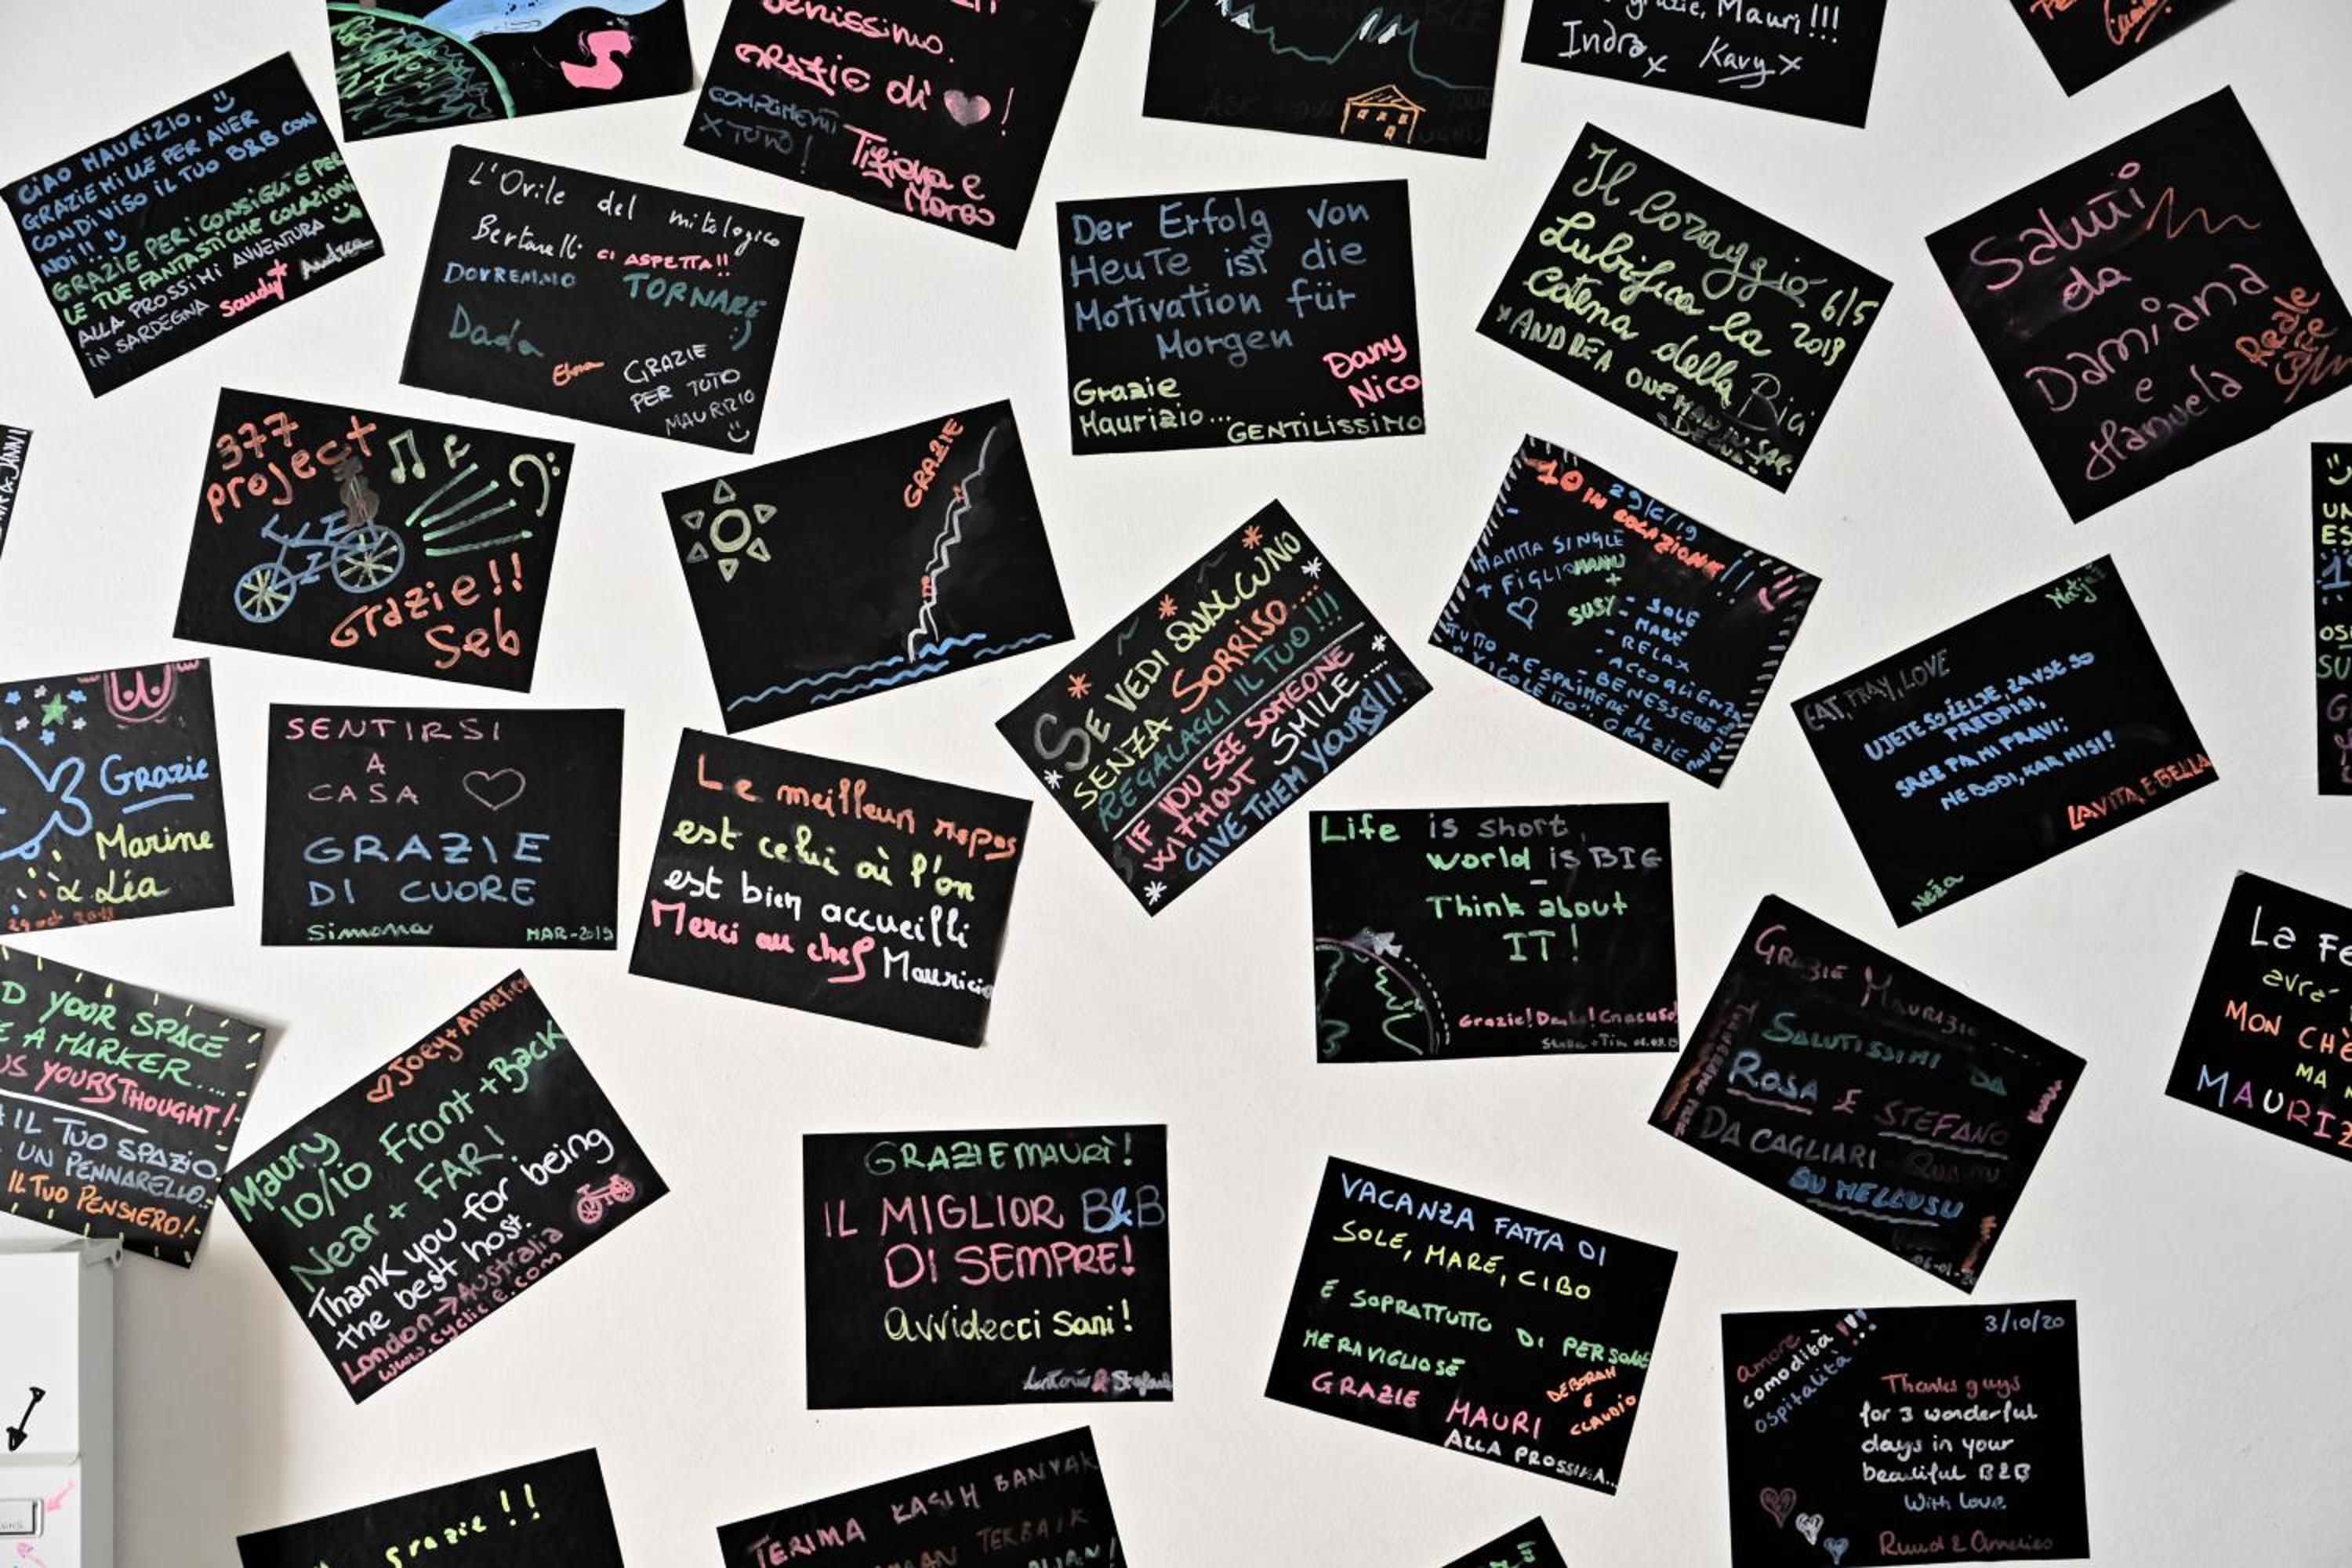 BENISSIMO.
GRAZIE di !
COMPLIMENTI
X TUTTO!
Tiziana e
Marco
ASK
YOUR
grazie, Mauri!!!
Indra x Kavy x
CIAO MAURIZIO,
GRAZIE MILLE PER AVER
CONDIVISO IL TUO B&B CON
NOI!!
GRAZIE PER I CONSIGLI E PER
LE TUE FANTASTICHE COLAZIONI
ALLA PROSSIMA AVVENTURA
IN SARDEGNA Sandy Andrea
L'Ovile del mitologico
Bertarelli CI ASPETTA!!
DOVREMMO TORNARE :)
Dada Elena GRAZIE
PER TUTO
MAURIZIO
Der Erfolg von
Heute ist die
Motivation für
Morgen
Dany
Nico
Grazie
Maurizio... GENTILISSIMO
Il Coraggio 6/5
Lubrifica la 2019
Catena della Bici
x ANDREA ONE MAN IN SAR-
DEGNA!
Saluti
da
Damiana
e
Manuela
Reale
377
project
Grazie!!
Seb
GRAZIE
SE VEDI QUALCUNO
SENZA SORRISO....
REGALAGLI IL TUO!!!
IF YOU SEE SOMEONE
WITHOUT SMILE....
GIVE THEM YOURS!!!
29/6/19
10 IN COLAZIONE!!
MAMMA SINGLE
+ FIGLIO MANU
+
SUSY = SOLE
- MARE
- RELAX
- ACCOGLIENZA
- BENESSERE
TUTTO X ESPRIMERE IL
GRAZIE MAURI
Matjaž
EAT, PRAY, LOVE
UJETE SO ŽELJE, ZAVSE SO
PREDPISI,
SRCE PA MI PRAVI:
NE BODI, KAR NISI!
LA VITA E BELLA
Neža
Grazie
Marine
& Léa
SENTIRSI
A
CASA
GRAZIE
DI CUORE
Simona MAR-2019
Le meilleur repos
est celui où l'on
est bien accueilli
Merci au chef Mauricio
Life is short,
world is BIG
Think about
IT!
Grazie! Danke!
Stella + Tim
GRAZIE MAURIZIO
SALUTISSIMI DA
ROSA E STEFANO
DA CAGLIARI
SU MELLUSU
La Fe
avré
MON CHE
MA
MAURIZ
D YOUR SPACE
E A MARKER....
US YOURS THOUGHT!
IL TUO SPAZIO
UN PENNARELLO..
IL TUO PENSIERO!
Joey + Annelies
Maury
10/10 Front + Back
Near + FAR!
Thank you for being
the best host.
London → Australia
www.cyclicle.com
GRAZIE MAURÌ!
IL MIGLIOR B&B
DI SEMPRE!
Avvidecci Sani!
VACANZA FATTA DI
SOLE, MARE, CIBO
E SOPRATTUTTO DI PERSONE
MERAVIGLIOSE
GRAZIE MAURI
DEBORAH
E
CLAUDIO
ALLA PROSSIMA...
3/10/20
amore
comodità !!!
ospitalità
Thanks guys
for 3 wonderful
days in your
beautiful B&B
With love.
Ruud & Annelies
grazie!!
TERIMA KASIH BANYAK
TERBAIK